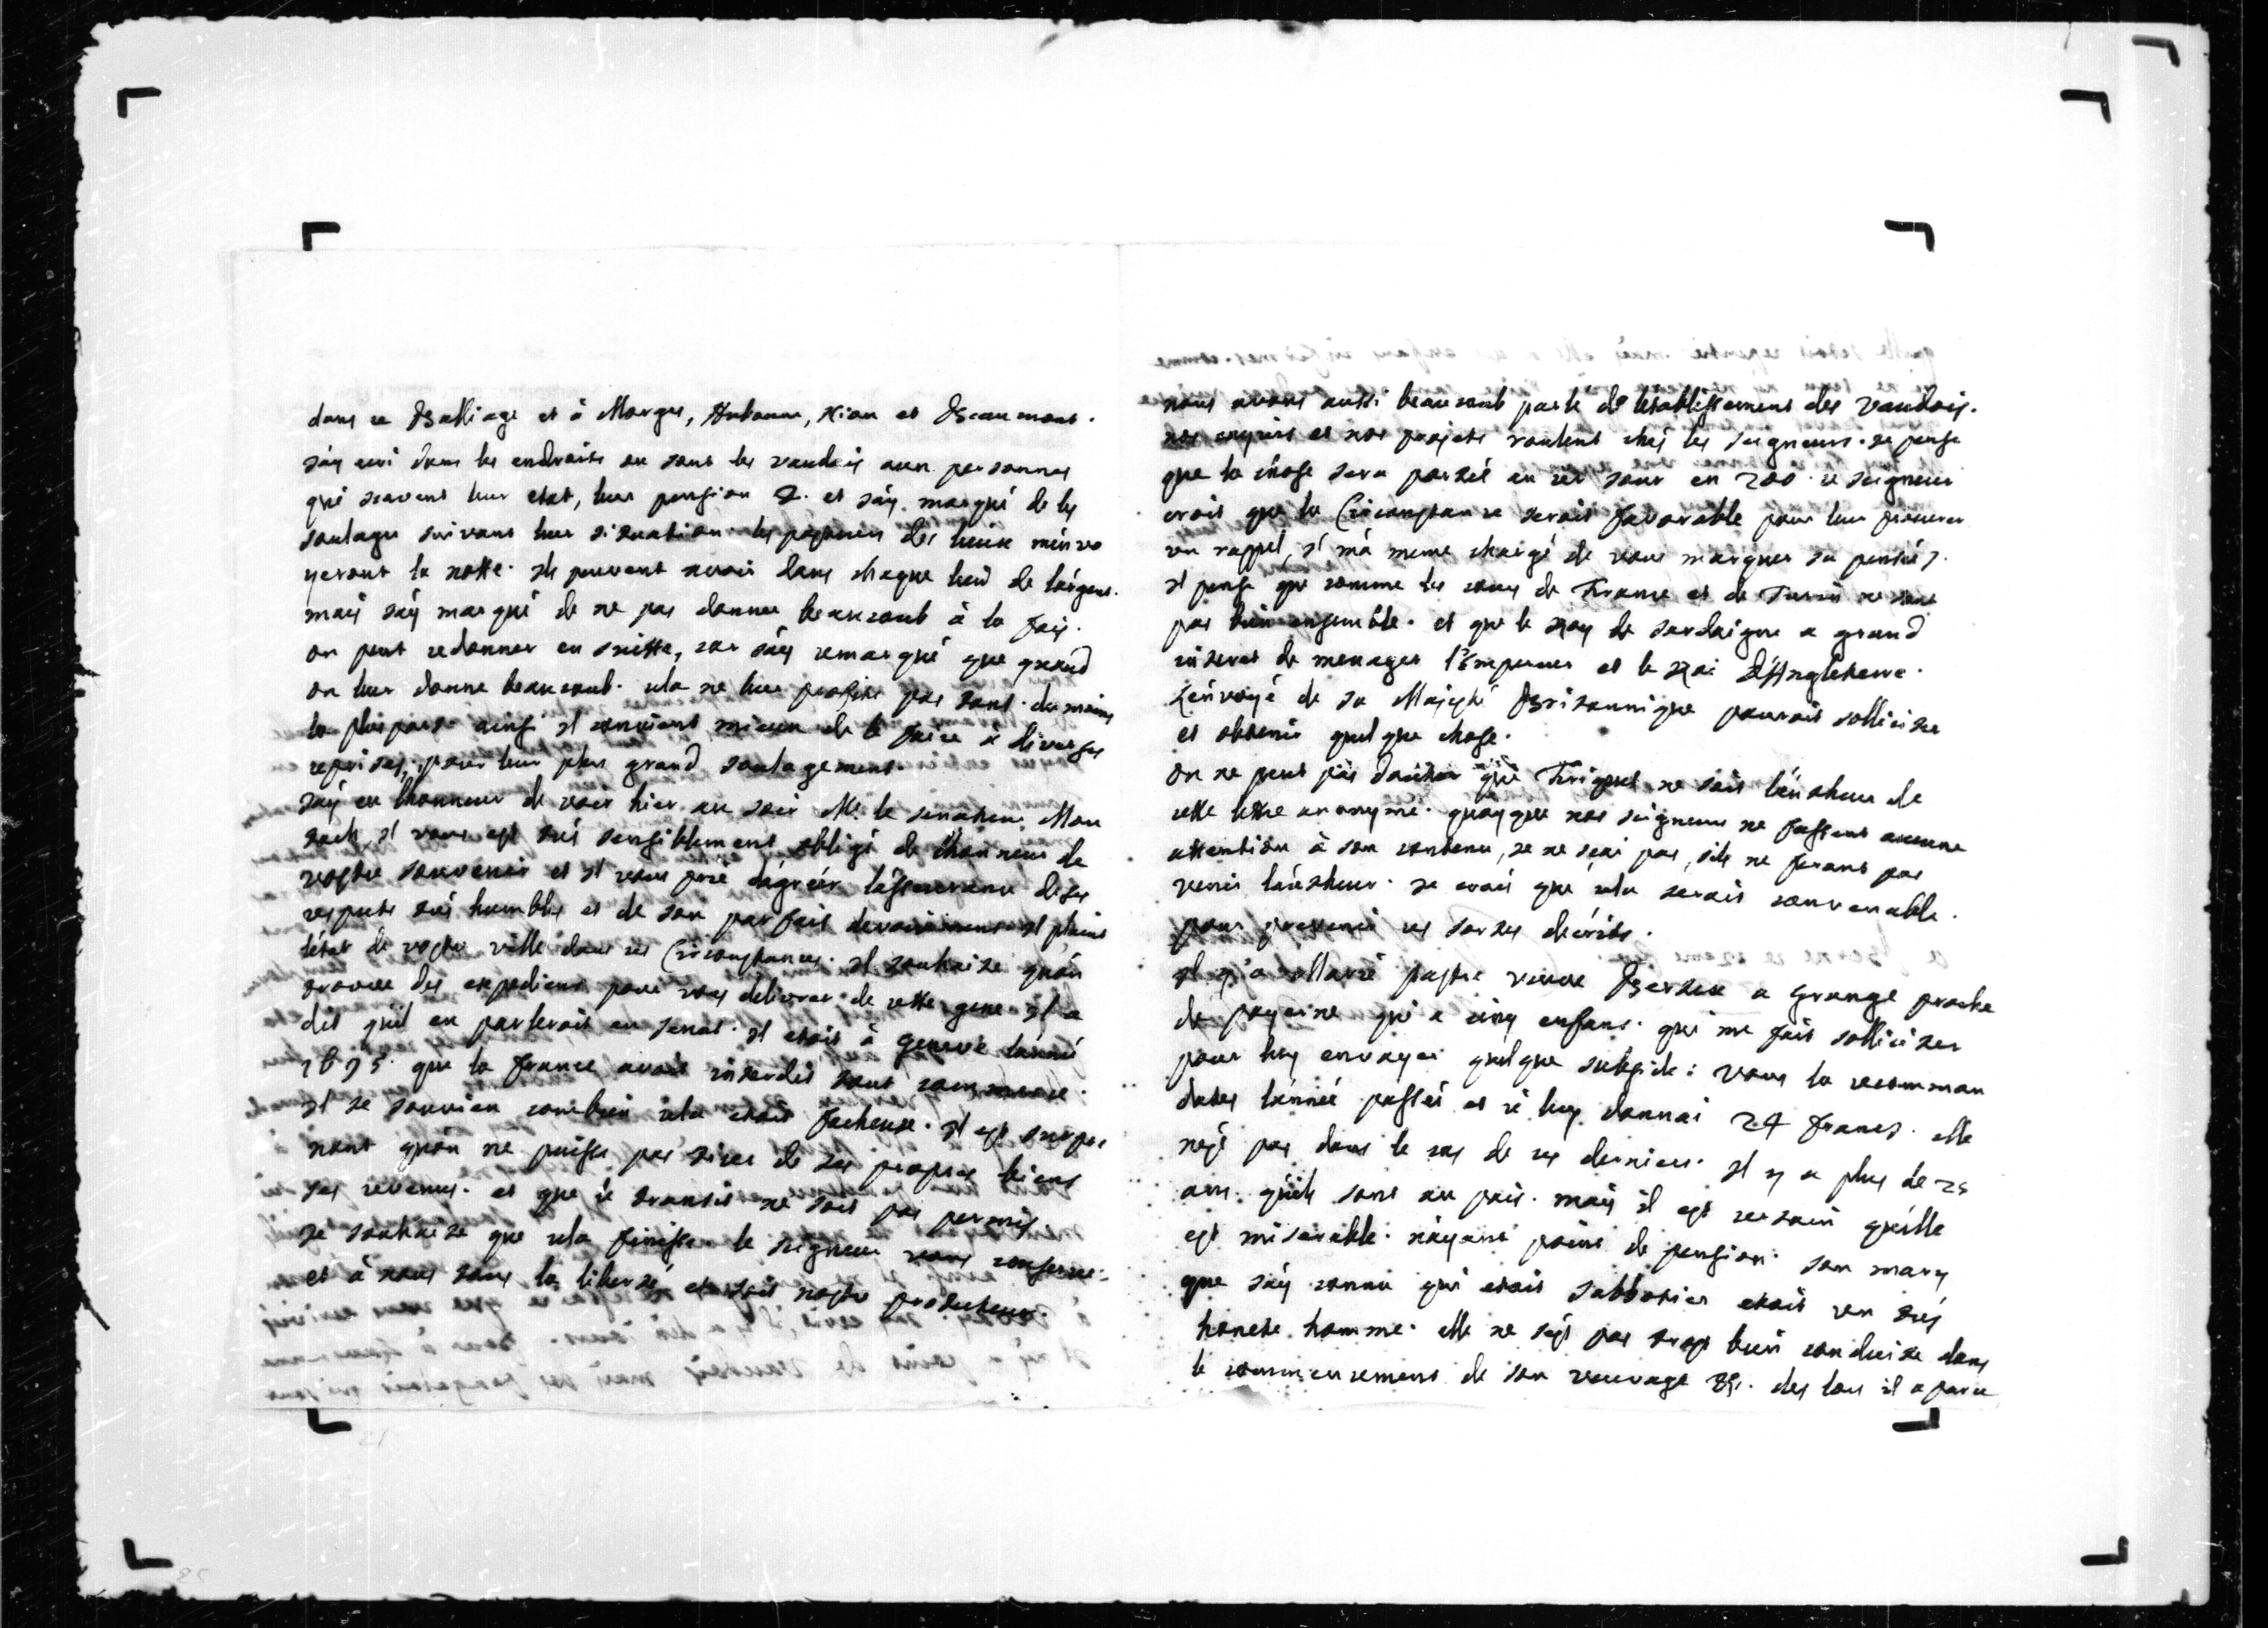 dans ce Balliage et à Morges, Aubonne, Nion et Beaumont.
jáy ecri dans les endroits ou sont les vaudois aux personnes
qui scavent leur etat, leur pension &. et jáy marqué de les
soulager suivant leur situation les pasteurs des lieux mínvo
yeront la notte. ils peuvent avoir dans chaque lieu de lárgent.
mais jáy marqué de ne pas donner beaucoub à la fois.
on peut redonner en suitte, car jáy remarqué que quand
on leur donne beaucoub. cela ne leur profite pas tant. du moins
la pluspart ainsi il convient mieux de le faire à diverses
reprises, pour leur plus grand soulagement.
jáy eu lhonneur de voir hier au soir Mr. le senateur Mou
sach, il vous est trés sensiblement obligé de lhonneur de
vostre souvenir et il vous prie dágréer lássurance de ses
respects trés humbles et de son parfait devouement il plaint
létat de vostre ville dans ces Circonstances. il souhaite quón
trouve des expediens pour vous delivrer de cette gene il a
dit quil en parlerois en senat. il etois à Geneve lánné
1695. que la france avoit interdit tout commerce.
il se souvien combien cela etois facheuse. il est surpre
nant quón ne puisse pas tirer de ses propres biens
ses revenus. et que le transit ne soit pas permis
je souhaite que cela finisse le seigneur vous conserve
et à nous tous la liberté, et soit nostre protecteur.
nous avons aussi beaucoub parlé de létablissement des vaudois.
nos enquis et nos projets roulent chés les seigneurs. je pense
que la chose sera portée en cet jour en 200. ce seigneur
crois que la Circonstance serois favorable pour leur procurer
un rappel, il má meme chargé de vous marquer sa pensée.
il pense que comme les cours de France et de Turin ne sont
pas bien ensemble. et que le Roy de sardaigne a grand
interet de menager lÉmpereur et le Roi DÁngleterre.
Lénvoyé de sa Majesté Britannique pourrois solliciter
et obtenir quelque chose.
on ne peut pas douter que Friquet ne soit láutheur de
cette lettre anonyme. quoyque nos seigneurs ne fassent aucune
attention à son contenu, je ne sçai pas, sils ne feront pas
venir láutheur. je crois que cela serois convenable.
pour prevenir ces sortes décrits.
il y'a Marie pastre veuve Bertin a Grange proche
de payerne qui a cinq enfans. qui me fait solliciter
pour luy envoyer quelque subside: vous la recomman
dates lánnée passée et je luy donnai 24 francs. elle
nést pas dans le cas de ces derniers. il y a plus de 25
ans. quíls sont au païs. mais il est certain quélle
est miserable. náyant point de pension. son mary
que jáy connu qui etois sabbotier etois un trés
honete homme. elle ne sést pas trop bien conduite dans
le commencement de son veuvage &c. des lors il a paru